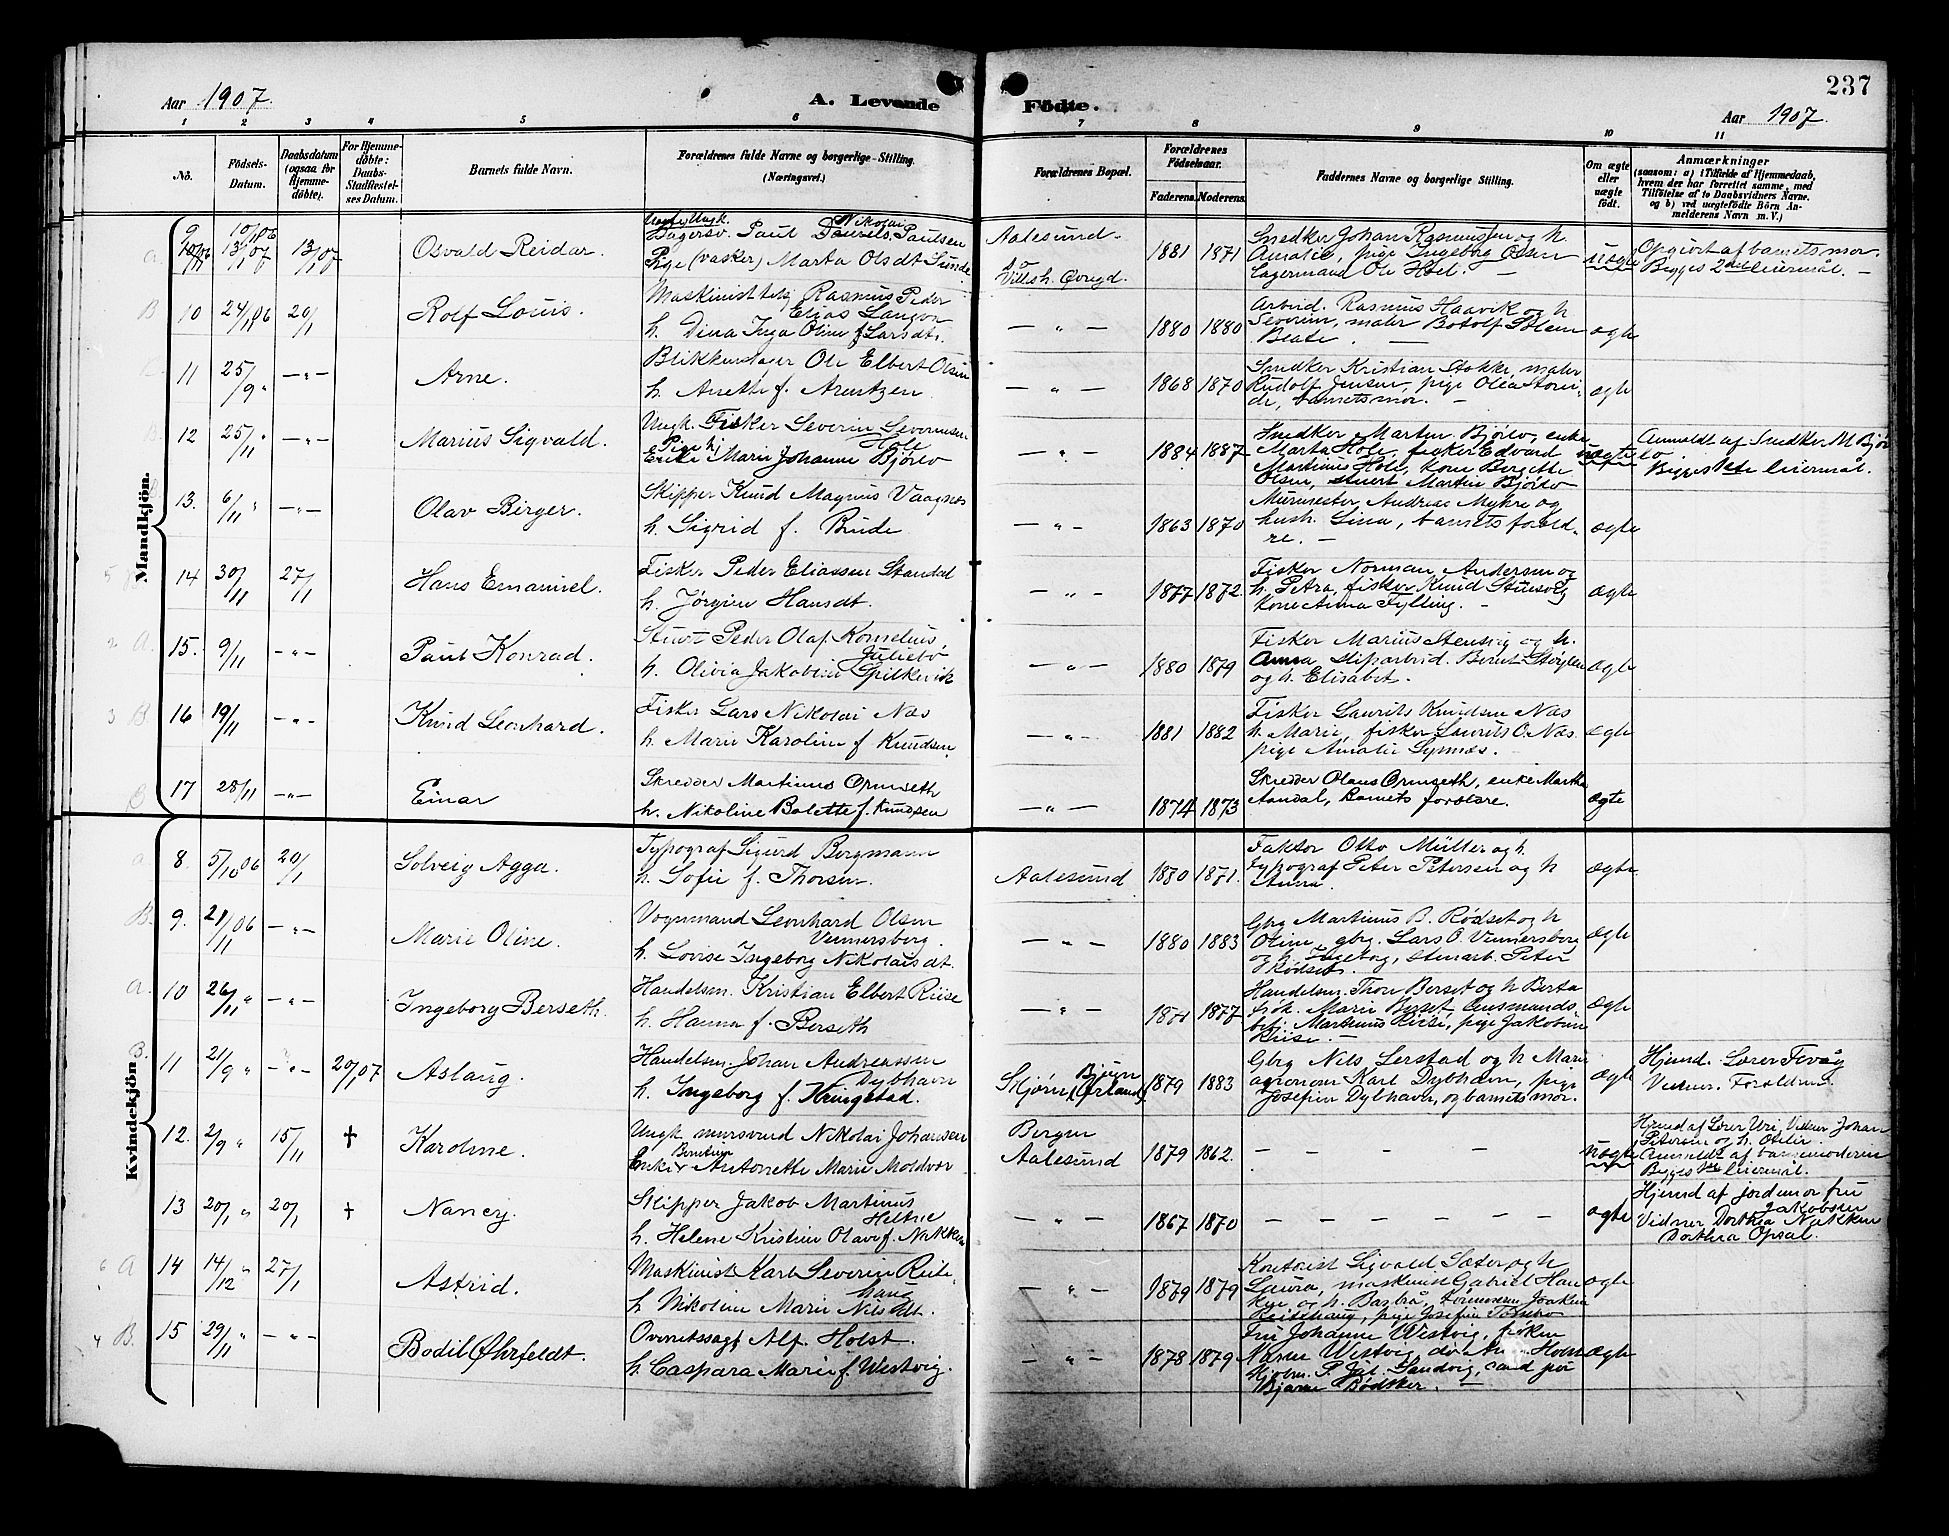 237
Aar 1907.
A. Levende Födte.
Aar 1907.
1 2 3 4 5 6 7 8 9 10 11
No.
Födsels-Datum.
Daabsdatum (ogsaa for Hjemmedöbte).
For Hjemmedöbte: Daabs-Stadfæstelses Datum.
Barnets fulde Navn.
Forældrenes fulde Navne og borgerlige Stilling. (Næringsvei.)
Forældrenes Bopæl.
Forældrenes Födselsaar.
Faderens. Moderens.
Faddernes Navne og borgerlige Stilling.
Om ægte eller uægte födt.
Anmærkninger
(saasom: a) i Tilfælde af Hjemmedaab, hvem der har forrettet samme, med Tilföielse af to Daabsvidners Navne, og b) ved uægtefödte Börn Anmelderens Navn m. V.)
Mandkjön.
9 13/07 Osvald Reidar.
Paul Daniels. Nikolai Paulsen
Pige (vasker) Marta Olsdt Sunde
Aalesund.
1881 1871
Snedker Johan Rasmussen og h.
Amalie, pige Ingeborg Olsen
Lagermand Ole Hoel. —
uægte
Opgjort af barnets mor.
Begges 2det leiermål. —
10 24/11 06 20/1 Rolf Louis.
Maskinist Rasmus Peder
Elias Langva
h. Dina Inga Oline f. Larsdt.
— „ —
1880 1880
Arbeid. Rasmus Haavik og h
Severine, maler Botolf
Beate. —
ægte
11 25/9 „ — „ — Arne.
Blikkenslager Ole Elbert Olsen
h. Anette f. Arntzen
— „ —
1868 1870
Snedker Kristian Stokke, maler
Rudolf Jensen, pige Olea
barnets mor. —
ægte
12 25/11 „ — „ — Marius Sigvald.
Ungk. Fisker Severin Severinsen
Hole
Marie Johanne Bjørlo
— „ —
1884 1887
Snedker Martin Bjørlo, enke
Marta Hole, fisker Edvard
Martinus Hole, kone Bergette
Olsen, stuert Martin Bjørlo
uægte
Anmeldt af Snedker M Bjør
lo.
Begges 1ste leiermål.
13. 6/11 „ — „ — Olav Birger.
Skipper Knud Magnus Vaagnes
h. Sigrid f. Rude
— „ —
1863 1870
Murmester Andreas Myhre og
hush. Lina, barnets foreld-
re. —
ægte
14 30/11 27/1 Hans Emanuel.
Fisker Peder Eliassen Standal
h. Jørgine Hansdt.
— „ —
1877 1872.
Fisker Norman Andersen og
h. Petra, fisker Knud
Kone Anna Fylling. —
ægte
15. 9/11 — „ — Paul Konrad.
Stuert Peder Olaf Kornelius
Juliebø
h. Olivia Jakobine Spilkevik
— „ —
1880 1879
Fisker Marius og h.
Anna sliparbeid. Bernt Støylen
og h. Elisabet.
ægte
16 19/11 — „ — Knud Leonhard.
Fisker Lars Nikolai Næs
h. Marie Karoline f. Knudsen
— „ —
1881 1882
Fisker Laurits Knudsen Næs
h. Marie, fisker Laurits O. Næs
pige Amalie Synnes.
ægte
17 28/11 — „ — Einar
Skredder Martinus Ormseth
h. Nikoline Bolette f. Knudsen
— „ —
1874 1873
Skredder Olaus Ormseth, enke Marthe
Aandal, Barnets forældre.
ægte
Kvindekjön.
8. 5/10 06 20/1 Solveig Agga.
Typograf Sigurd Bergmann
h. Sofie f. Thorsen.
Aalesund
1880 1871.
Faktor Otto Müller og h.
Typograf Peter Petersen og h
Anna.
ægte
9. 21/11 06 — „ — Marie Oline.
Vognmand Leonhard Olsen
Vinnersborg.
h. Lovise Ingeborg Nikolaisdt.
— „ —
1880 1883
Gbrg Martinus B. Rødset og h
Oline, gbrg. Lars O. Vinnersborg
og h. Ingeborg, stenarb. Peter
Rødset.
ægte
10 26/11 „ — „ — Ingeborg Berseth.
Handelsm. Kristian Elbert Riise
h. Hanna f. Berseth
— „ —
1871 1877
Handelsm. Thore Berset og h Berta
frøk. Marie Berset
Martinus Riise, pige Jakobine
Riise. —
ægte
11 21/9 „ — „ — 20/1 07 Aslaug.
Handelsm. Johan Andreassen
Dybhavn
h. Ingeborg f. Kringstad.
Bjugn
Skjørn (Ørland).
1879 1883
Gbrg Nils Lerstad og h Marie
agronom Karl Dybhavn, pige
Josefine Dybhavn, og barnets mor.
ægte
Hjemd. Lærer
Vidner. Forældrene.
12. 2/9 „ 15/11 † Karoline.
Ungk. mursvend Nikolai Johansen
Enke Antonette Marie Moldvær
Bergen
Aalesund
1879 1862.
— — — —
uægte
Hjemd af Lærer Uri. Vidner Johan
Petersen og h. Otelie
Anmeldt af barnemoderen
Begges leiermål.
13 20/1 „ 20/1 † Nancy.
Skipper Jakob Martinus
Heltne
h. Helene Kristine Olave f. Nakken
— „ —
1867 1870
— — — — — —
ægte
Hjemd af jordemor fru
Jakobsen
Vidner Dorthea Nakken
Dorthea Opsal.
14 14/12 „ 27/1 Astrid.
Maskinist Karl Severin Reite-
haug
h Nikoline Marie Nilsdt.
— „ —
1879 1879
Kontorist Sigvald Sæter og h
Laura, maskinist Gabriel Han
og h. Barbra, Joakim
Reitehaug, pige Josefine
ægte
15 29/11 „ — „ — Bodil Øhrfeldt.
Overretssagf. Alf. Holst.
h. Caspara Marie f. Westvig.
— „ —
1878 1879
Fru Johanne Westvig, frøken
Maren Westvig, do Holm
P. Jul. Sandvig, cand jur
Bjarne Bødtker. —
ægte